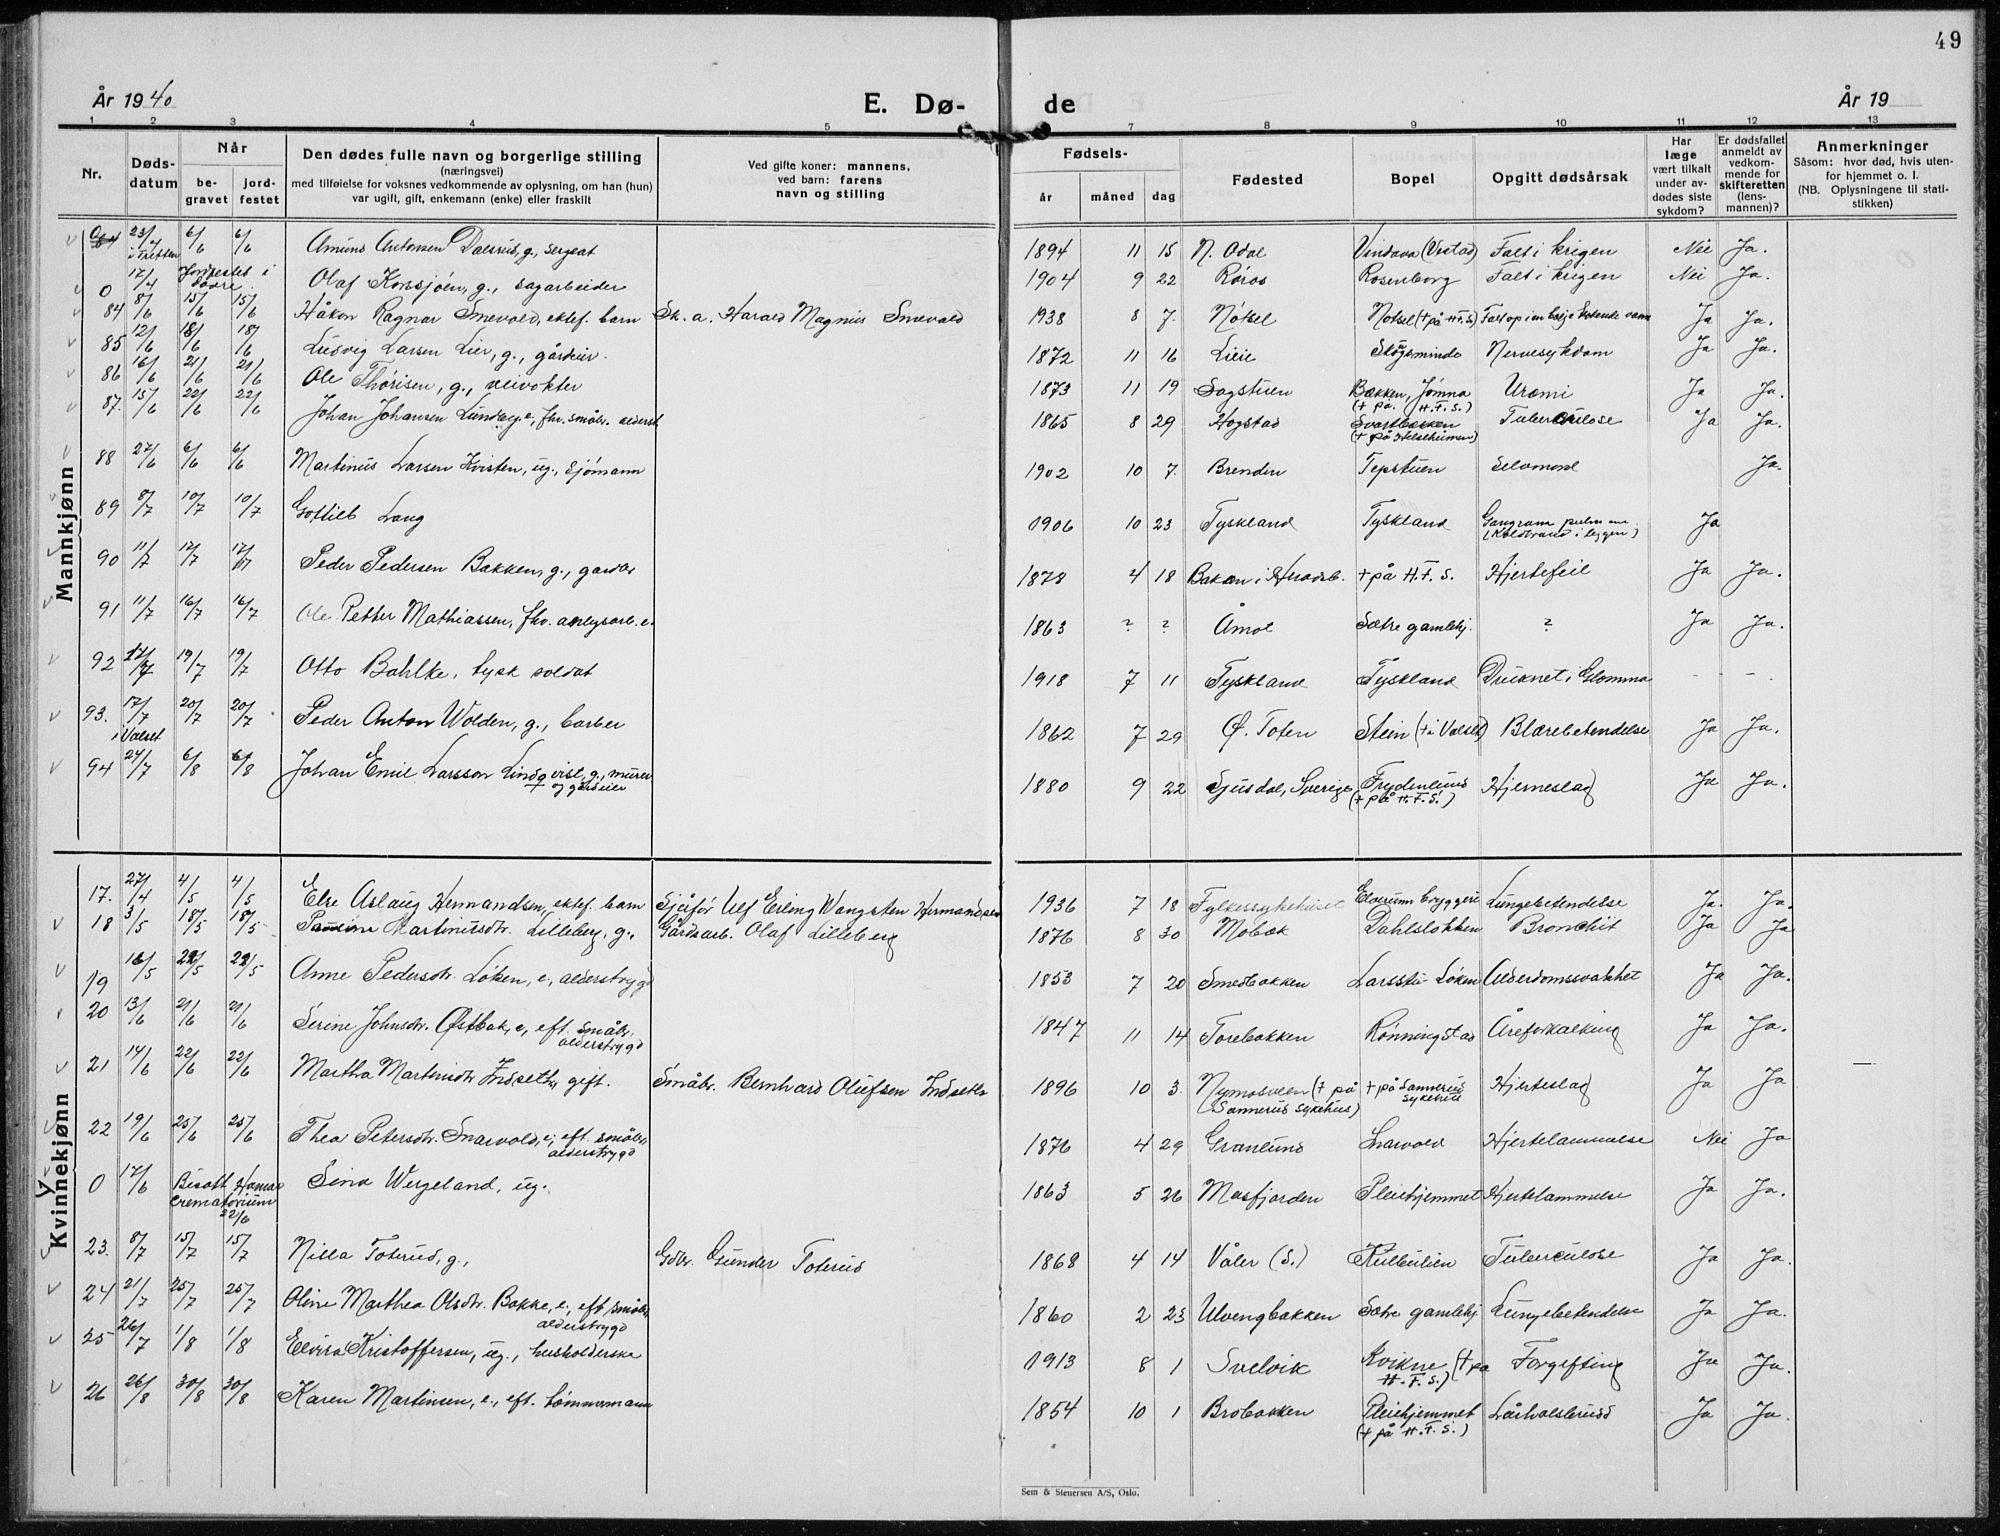 49
År 1940
E. Døde
År 19
1 2 3 4 5 7 8 9 10 11 12 13
Nr.
Dødsdatum
Når
begravet
jordfestet
Den dødes fulle navn og borgerlige stilling
(næringsvei)
med tilføielse for voksnes vedkommende av oplysning, om han (hun)
var ugift, gift, enkemann (enke) eller fraskilt
Ved gifte koner: mannens,
ved barn: farens
navn og stilling
Fødsels-
år måned dag
Fødested
Bopel
Opgitt dødsårsak
Har
læge
vært tilkalt
under avdødes siste
sykdom?
Er dødsfallet
anmeldt av
vedkommende for
skifteretten
(lensmannen)?
Anmerkninger
Såsom: hvor død, hvis utenfor hjemmet o. l.
(NB. Oplysningene til statistikken)
Mannkjønn
0 23/4 i Tretten 6/6 6/6 Amund Antonsen Dalsrud, g., sergeat 1894 11 15 N. Odal Vindava (Vestad) Falt i krigen Nei Ja.
0 17/4 Jordfestet i Dovre. Olaf Korssjøen, g., sagarbeider 1904 9 22 Røros Rosenborg Falt i krigen Nei Ja.
84 8/6 15/6 15/6 Håkon Ragnar Smevold, ektef. barn Sk. a. Harald Magnus Smevold 1938 8 7. Nøtsel Nøtsel (+ på H.F.S.) Falt op i en bølje kokende vann Ja Ja.
85 12/6 18/6 18/6 Ludvig Larsen Lier, g., gårdeier. 1872 11 16 Lieie Skogsminde Nervesykdom Ja Ja.
86 16/6 21/6 21/6 Ole Thorisen, g., veivokter 1873 11 19 Sagstuen Bækken, Jømna (+ på H.F.S.) Uræmi Ja Ja.
87. 15/6 22/6 22/6 Johan Johansen Lundby, e., fhv. småbr. alderst. 1865 8 29 Hogstad Svartbekken (+ på Helseheimen) Tuberculose Ja Ja.
88 27/6 6/6 6/6 Martinus Larsen Kvisten, ug., sjømann 1902 10 7. Brenden Tepstuen Selvmord Ja.
89 8/7 10/7 10/7 Gottlieb Lang 1906 10 23 Tyskland Tyskland Gangræn pulm (Koldbrand i leggen) Ja
90 11/7 17/7 17/7 Peder Pedersen Bakken, g., gardbr 1878 4 18 Bakken i Heradsb. + på H.F.S. Hjertefeil Ja Ja.
91 11/7 16/7 16/7 Ole Petter Mathiassen, fhv. anlegsarb. e. 1863 ? ? Åmot Sætre gamlehj. ? Ja Ja.
92 17/7 19/7 19/7 Otto Bahlke, tysk soldat 1918 7 11 Tyskland Tyskland Druknet i Glomma - - -
93. 17/7 i Valset 20/7 20/7 Peder Anton Wolden, g., barber 1862 7 29 Ø. Toten Stein (+ i Valset) Blærebetendelse Ja Ja.
94 24/7 6/8 6/8 Johan Emil Larsson Lindqvist, g., murer og gårdeier 1880 9 22 Ljusdal, Sverige Frydenlund (+ på H.F.S.) Hjerneslag Ja Ja.
Kvinnekjønn
17. 27/4 4/5 4/5 Else Aslaug Hermandsen, ektef. barn Sjåfør Ulf Erling Wangsten Hermandsen 1936 7 18 Fylkessykehuset Elverum bryggeri Lungebetendelse Ja. Ja.
18 3/5 18/5 18/5 Martinusdtr. Lilleberg, g., Gårdsarb. Olaf Lilleberg 1876 8 30 Mobæk Dahlsløkken Bronchit Ja Ja
19 16/5 29/5 29/5 Anne Pedersdtr. Løken, e., alderstrygd 1853 7 20 Smedbakken Larsstu Løken Alderdomssvakhet Ja Ja.
20 13/6 21/6 21/6 Serine Johnsdtr. Østbak, e, eft. småbr. alderstrygd 1847 11 14 Torebakken Rønningstad Åreforkalkning Ja Ja.
21 14/6 22/6 22/6 Martha Martinsdtr Indseth, gift. Småbr. Bernhard Olufsen Indseth 1896 10 3. Nymosveen (+ på Sannerud sykehus) + på Sannerud sykehus Hjerteslag Ja Ja —
22 19/6 25/6 25/6 Thea Petersdtr. Snarvold, e., eft. småbr. alderstrygd 1876 4 29 Granlund Snarvold Hjertelammelse Nei Ja
0 17/6 Bisatt Hamar Crematorium 22/6 Sina Wergeland, ug. 1863 5 26 Masfjorden Pleiehjemmet Hjertelammelse Ja Ja.
23. 8/7 15/7 15/7 Nilla Toterud, g., Gdbr. Gunder Toterud 1868 4 14 Våler (S.) Kulbulien Tuberculose Ja Ja.
24 21/7 25/7 25/7 Oline Marthea Olsdtr. Bakke, e., eft småbr. alderstrygd 1860 2 23 Ulvengbakken Sætre gamlehj Lungebetendelse Ja Ja.
25 26/7 1/8 1/8 Elvira Kristoffersen, ug., husholderske 1913 8 1 Svelvik Kvikne (+ på H.F.S.) Forgiftning Ja Ja.
26 26/8 30/8 30/8 Karen Martinsen, e., eft. tømmermann 1854 10 1 Brobakken Pleiehjemmet (+ på H.F.S.) Lårhalsbrudd Ja Ja.
Sem & Stenersen A/S, Oslo.